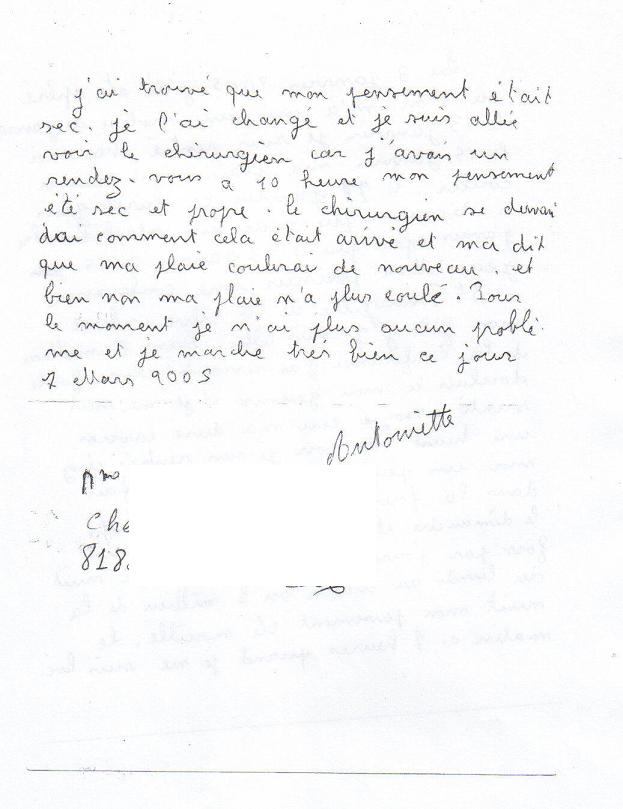 j'ai trouvé que mon pensement était
sec. je l'ai changé et je suis allée
voir le chirurgien car j'avais un
rendez-vous a 10 heure mon pensement
été sec et propre. le chirurgien se deman
dai comment cela était arivé et ma dit
que ma plaie coulerai de nouveau. et
bien non ma plaie n'a plus coulé. Pour
le moment je n'ai plus aucun problè-
me et je marche très bien ce jour
7 Mars 2005
Antoinette
Mme
Che
818.